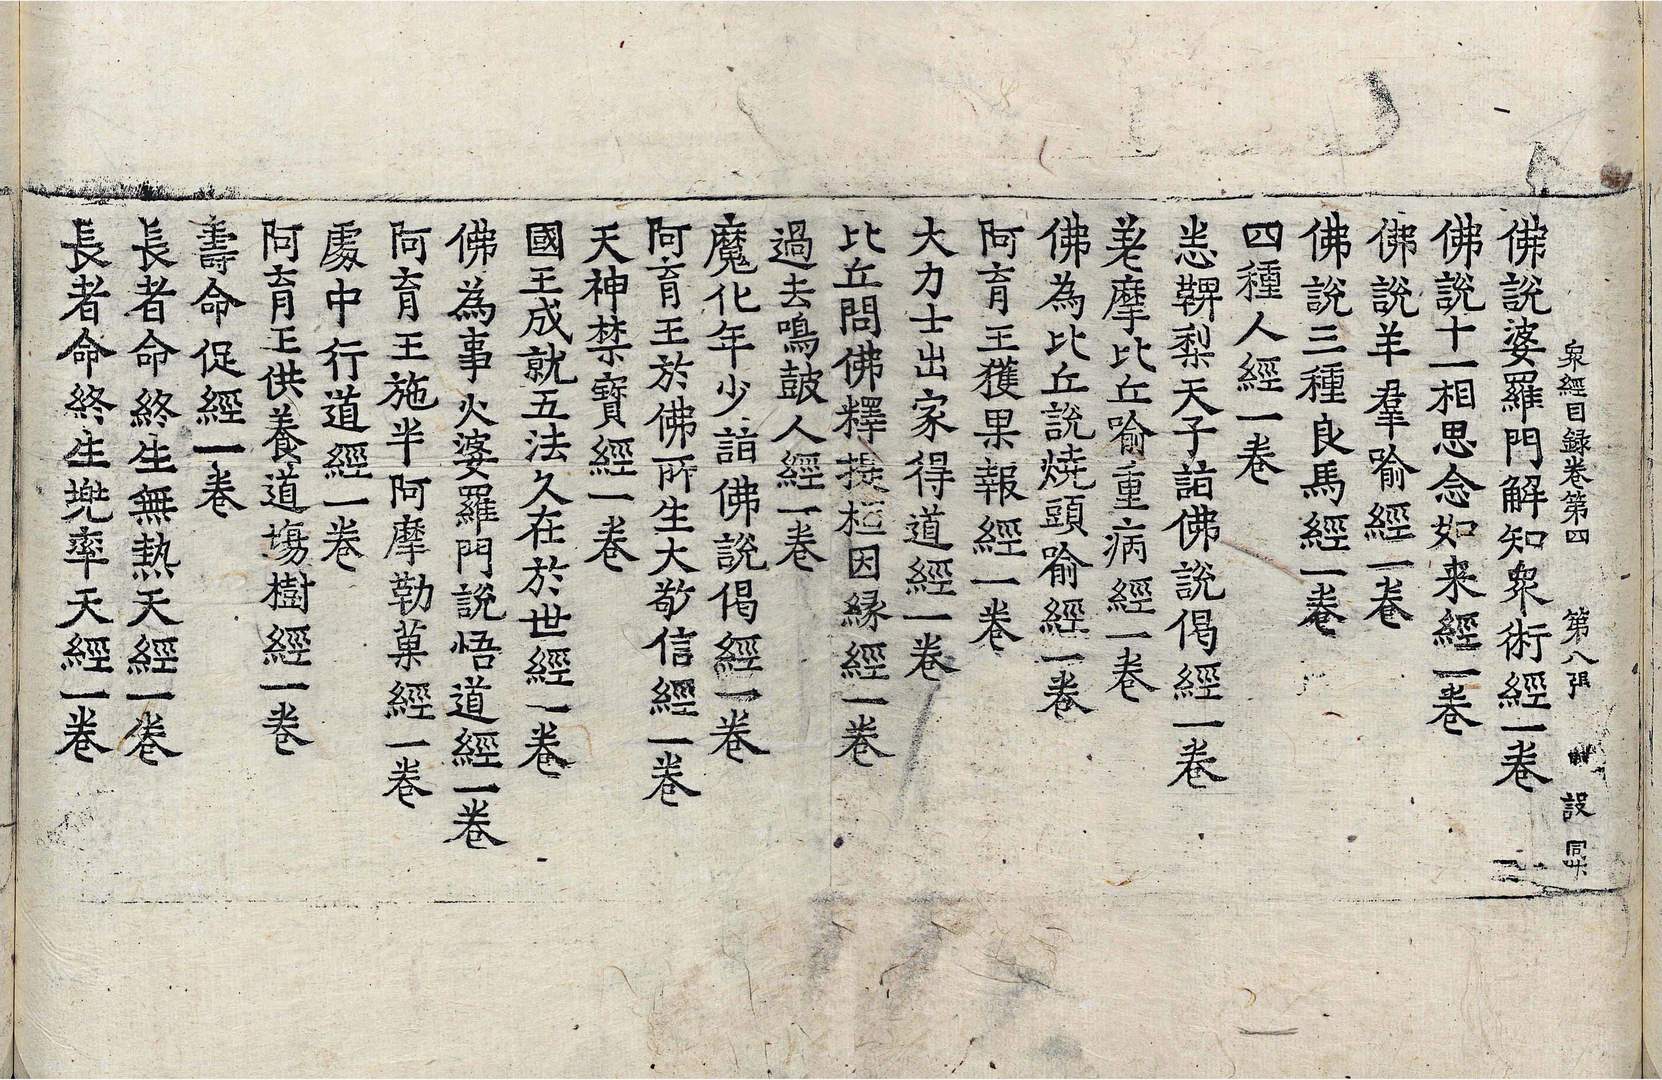 衆經目録卷第四 第八張 設 同
佛說婆羅門解知衆術經一卷
佛說十一相思念如来經一卷
佛說羊羣喻經一卷
佛說三種良馬經一卷
四種人經一卷
恙鞞梨天子詣佛說偈經一卷
差摩比丘喻重病經一卷
佛為比丘說燒頭喻經一卷
阿育王獲果報經一卷
大力士出家得道經一卷
比丘問佛釋提桓因緣經一卷
過去鳴鼓人經一卷
魔化年少詣佛說偈經一卷
阿育王於佛所生大敬信經一卷
天神禁寶經一卷
國王成就五法久在於世經一卷
佛為事火婆羅門說悟道經一卷
阿育王施半阿摩勒菓經一卷
處中行道經一卷
阿育王供養道塲樹經一卷
壽命促經一卷
長者命終生無熱天經一卷
長者命終生兜率天經一卷